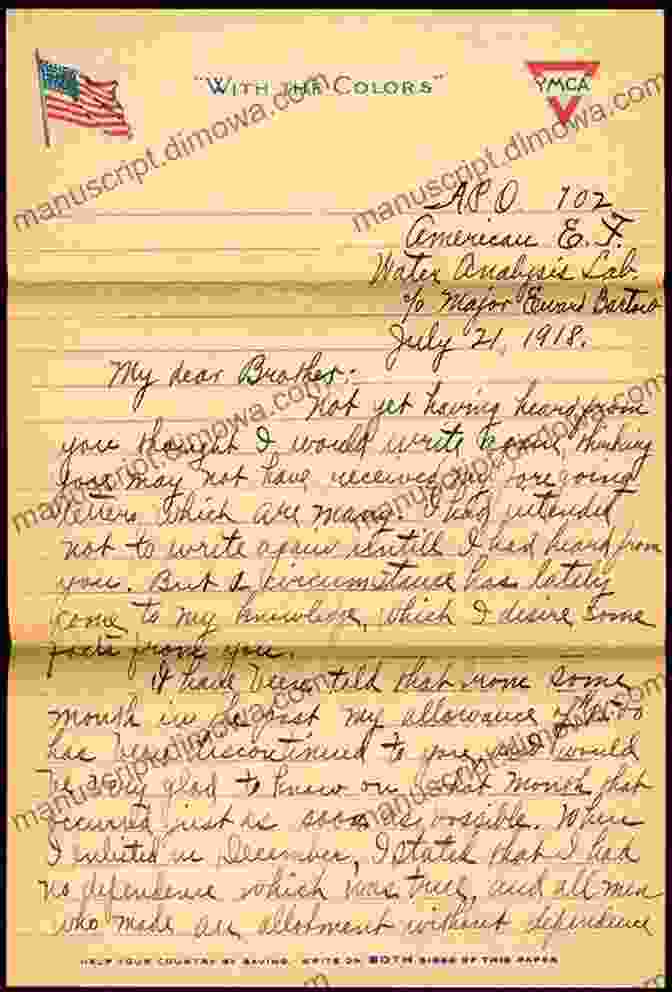 "WITH THE COLORS"
YMCA
A.P.O. 702
American E. F.
Water Analysis Lab
c/o Major Edward Bartow
July 21, 1918.
My dear Brother:
Not yet having heard from
you thought I would write again, thinking
you may not have received my foregoing
letters which are many. I had intended
not to write again untill I had heard from
you. But a circumstance has lately
come to my knowledge, which I desire some
facts from you.
I have been told that from some
month in the past my allowance of
has been discontinued to you, and would
be very glad to know on what month that
occurred just as soon as possible. When
I enlisted in December, I stated that I had
no dependence which was true, and all men
who made an allotment without dependence
HELP YOUR COUNTRY BY SAVING. WRITE ON BOTH SIDES OF THIS PAPER
manuscript.dimowa.com
manuscript.dimowa.com
manuscript.dimowa.com
manuscript.dimowa.com
manuscript.dimowa.com
manuscript.dimowa.com